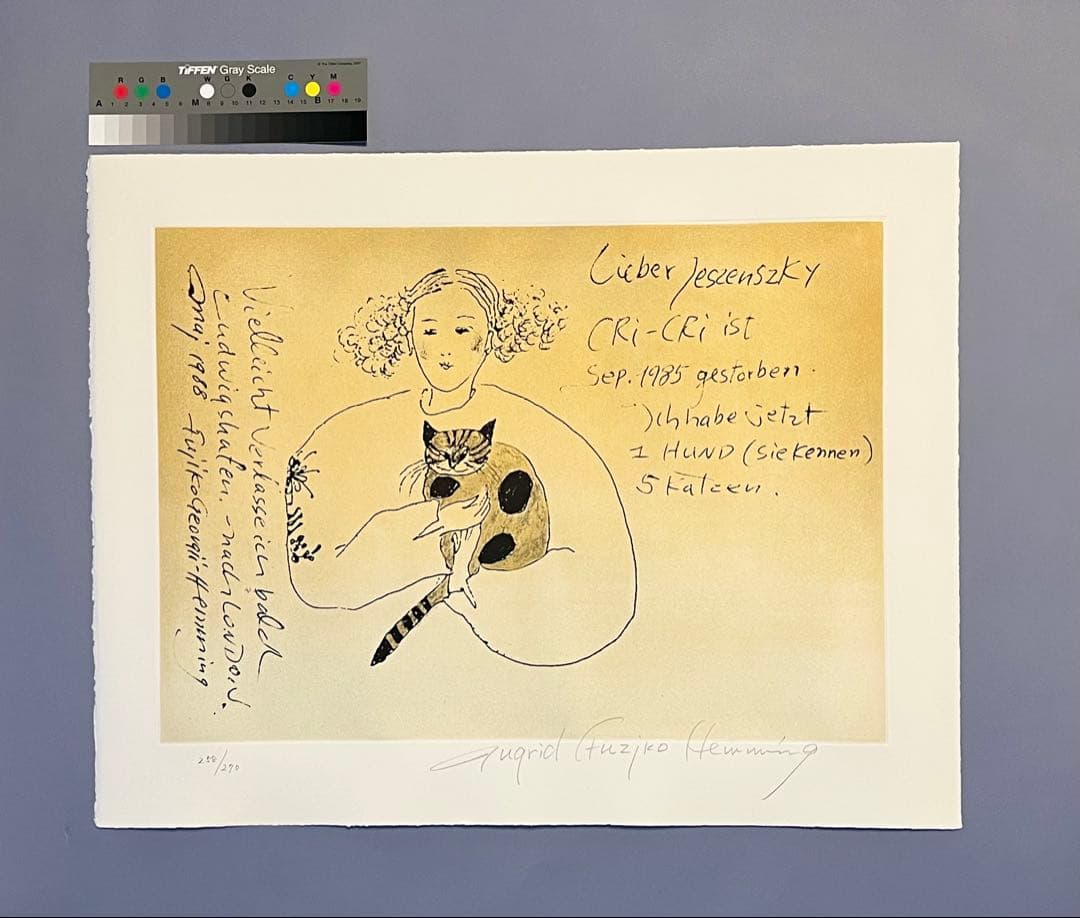 TiFFEN Gray Scale
R G B W G K C Y M
A 1 2 3 4 5 6 M 8 9 10 11 12 13 14 15 B 17 18 19
Lieber Jeszenszky
CRi-CRi ist
Sep. 1985 gestorben.
Ich habe jetzt
1 HUND (Sie kennen)
5 Katzen.
Vielleicht Verlasse ich bald
Ludwigshafen. - nach LONDON.
maj 1988 - Fujiko Georgii Hemming
258/290
Ingrid Fuzjko Hemming